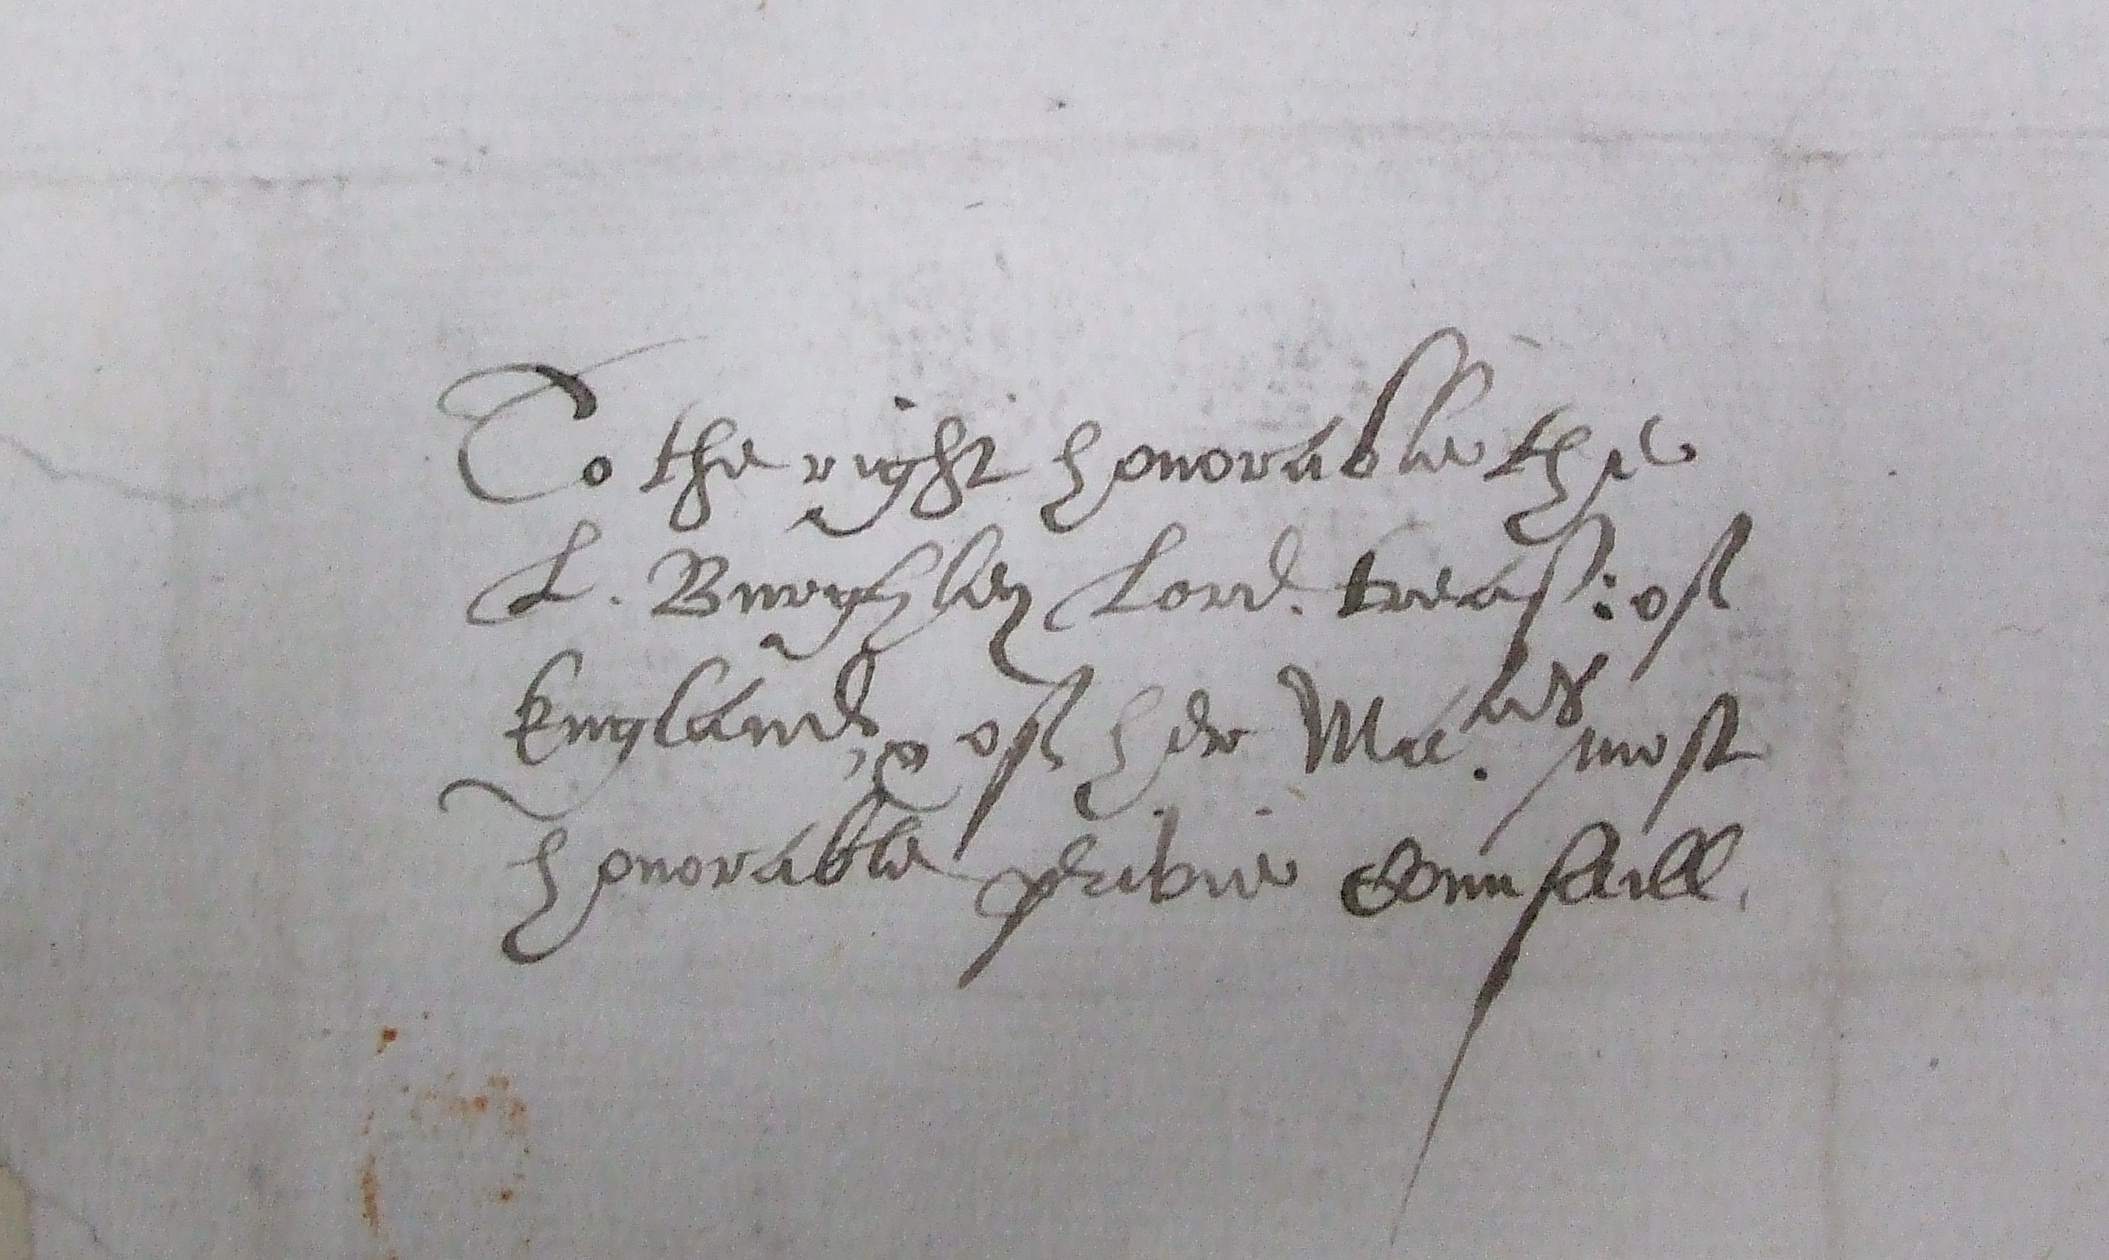 To the right honorable the
L. Burghley Lord. treas: of
England, & of her Ma.ties most
honorable privie Counsaill.